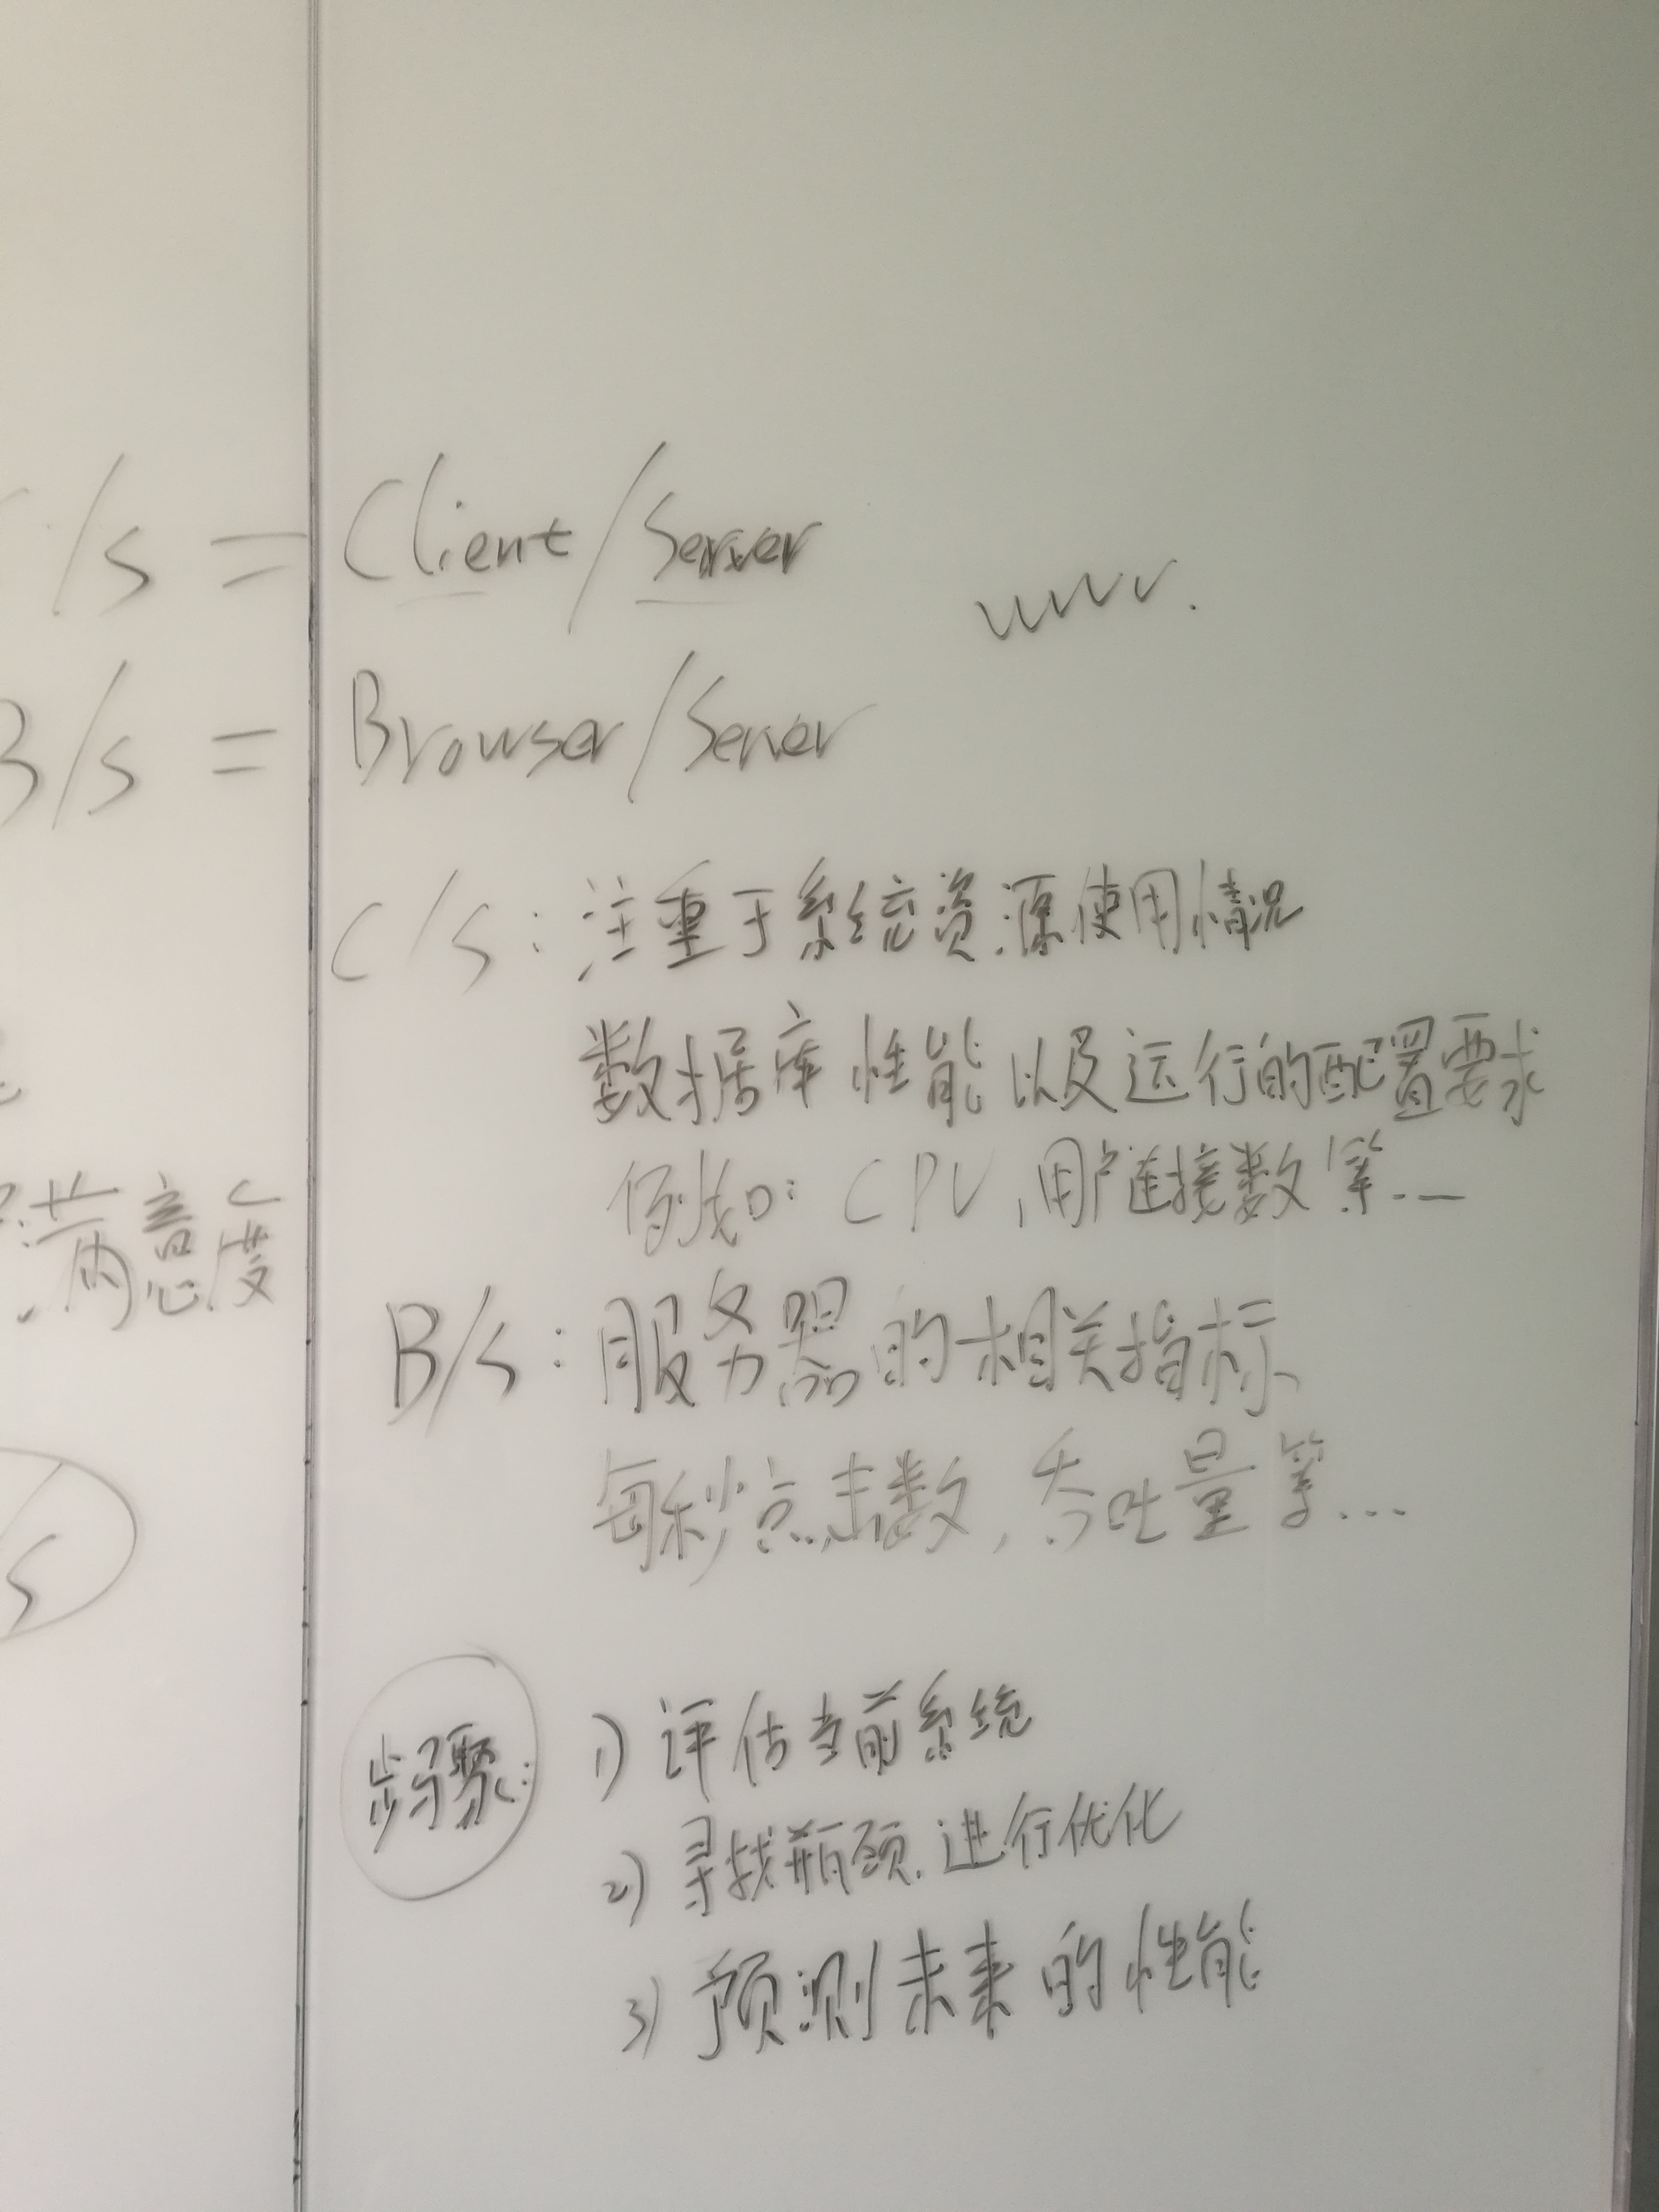 /S = Client/Server
www.
B/S = Browser/Server
C/S: 注重于系统资源使用情况
数据库性能以及运行的配置要求
例如: CPU, 用户连接数等...
满意度
B/S: 服务器的相关指标
每秒点击数, 吞吐量等...
S
步骤: 1) 评估当前系统
2) 寻找瓶颈. 进行优化
3) 预测未来的性能